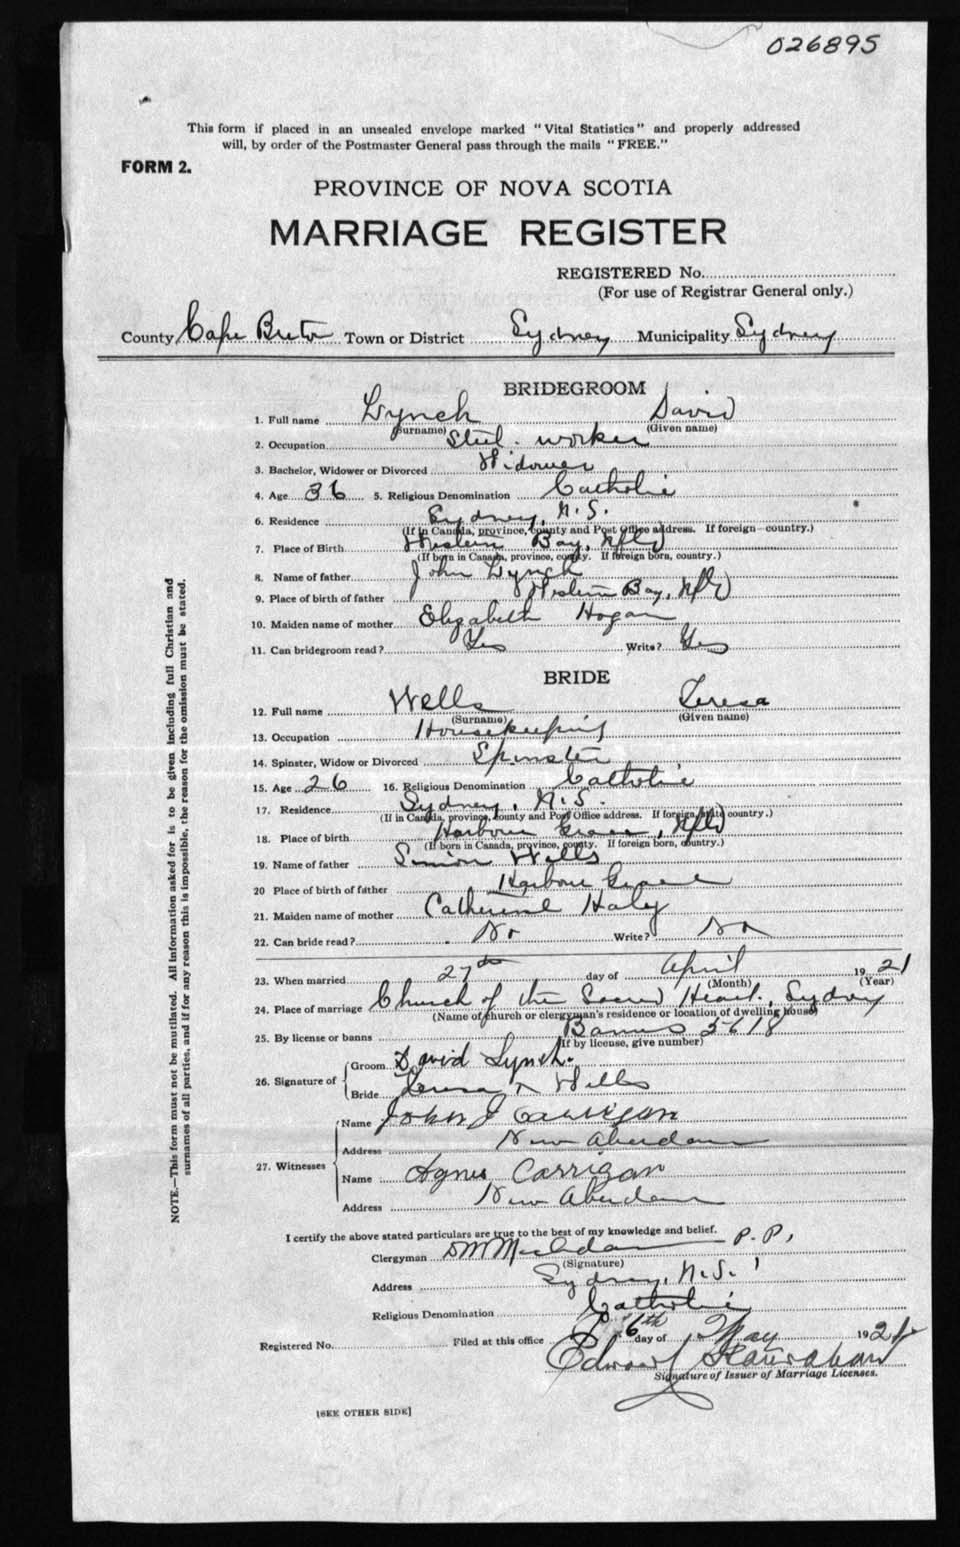 026895
This form if placed in an unsealed envelope marked "Vital Statistics" and properly addressed
will, by order of the Postmaster General pass through the mails "FREE."
FORM 2.
PROVINCE OF NOVA SCOTIA
MARRIAGE REGISTER
REGISTERED No.
(For use of Registrar General only.)
County Cape Breton Town or District Sydney Municipality Sydney
BRIDEGROOM
1. Full name Lynch David
(Surname) (Given name)
2. Occupation Steel worker
3. Bachelor, Widower or Divorced Widower
4. Age 36 5. Religious Denomination Catholic
6. Residence Sydney, N.S.
(If in Canada, province, county and Post Office address. If foreign country.)
7. Place of Birth Western Bay, Nfld
(If born in Canada, province, county. If foreign born, country.)
8. Name of father John Lynch
9. Place of birth of father Western Bay, Nfld
10. Maiden name of mother Elizabeth Hogan
11. Can bridegroom read? Yes Write? Yes
BRIDE
12. Full name Wells Teresa
(Surname) (Given name)
13. Occupation Housekeeping
14. Spinster, Widow or Divorced Spinster
15. Age 26 16. Religious Denomination Catholic
17. Residence Sydney, N.S.
(If in Canada, province, county and Post Office address. If foreign, state country.)
18. Place of birth Harbour Grace, Nfld
(If born in Canada, province, county. If foreign born, country.)
19. Name of father Simon Wells
20 Place of birth of father Harbour Grace
21. Maiden name of mother Catherine Haley
22. Can bride read? No Write? No
23. When married 27th day of April 1921
(Month) (Year)
24. Place of marriage Church of the Sacred Heart, Sydney
(Name of church or clergyman's residence or location of dwelling house)
25. By license or banns Banns 5618
(If by license, give number)
26. Signature of Groom David Lynch.
Bride Teresa Wells
27. Witnesses Name John J Carrigan
Address New Aberdeen
Name Agnes Carrigan
Address New Aberdeen
I certify the above stated particulars are true to the best of my knowledge and belief.
Clergyman P.P.
(Signature)
Address Sydney, N.S.
Religious Denomination Catholic
Registered No. Filed at this office 6th day of May 1921
Edward
Signature of Issuer of Marriage Licenses.
[SEE OTHER SIDE]
NOTE.—This form must not be mutilated. All information asked for is to be given including full Christian and
surnames of all parties, and if for any reason this is impossible, the reason for the omission must be stated.